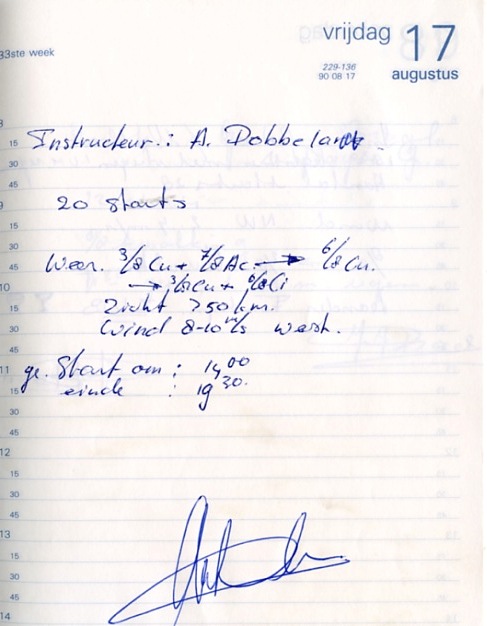 vrijdag 17
33ste week
229-136
90 08 17 augustus
Instructeur.: A. Dobbelaar
20 starts
Weer. 3/8 Cu + 7/8 Ac. → 6/8 Cu.
→ 3/8 Cu + 6/8 Ci
Zicht >50 km.
Wind 8-10 m/s west.
ge. Start om : 14,00
einde : 19 30.
15
30
45
15
30
45
10
15
30
45
11
15
30
45
12
15
30
45
13
15
30
45
14